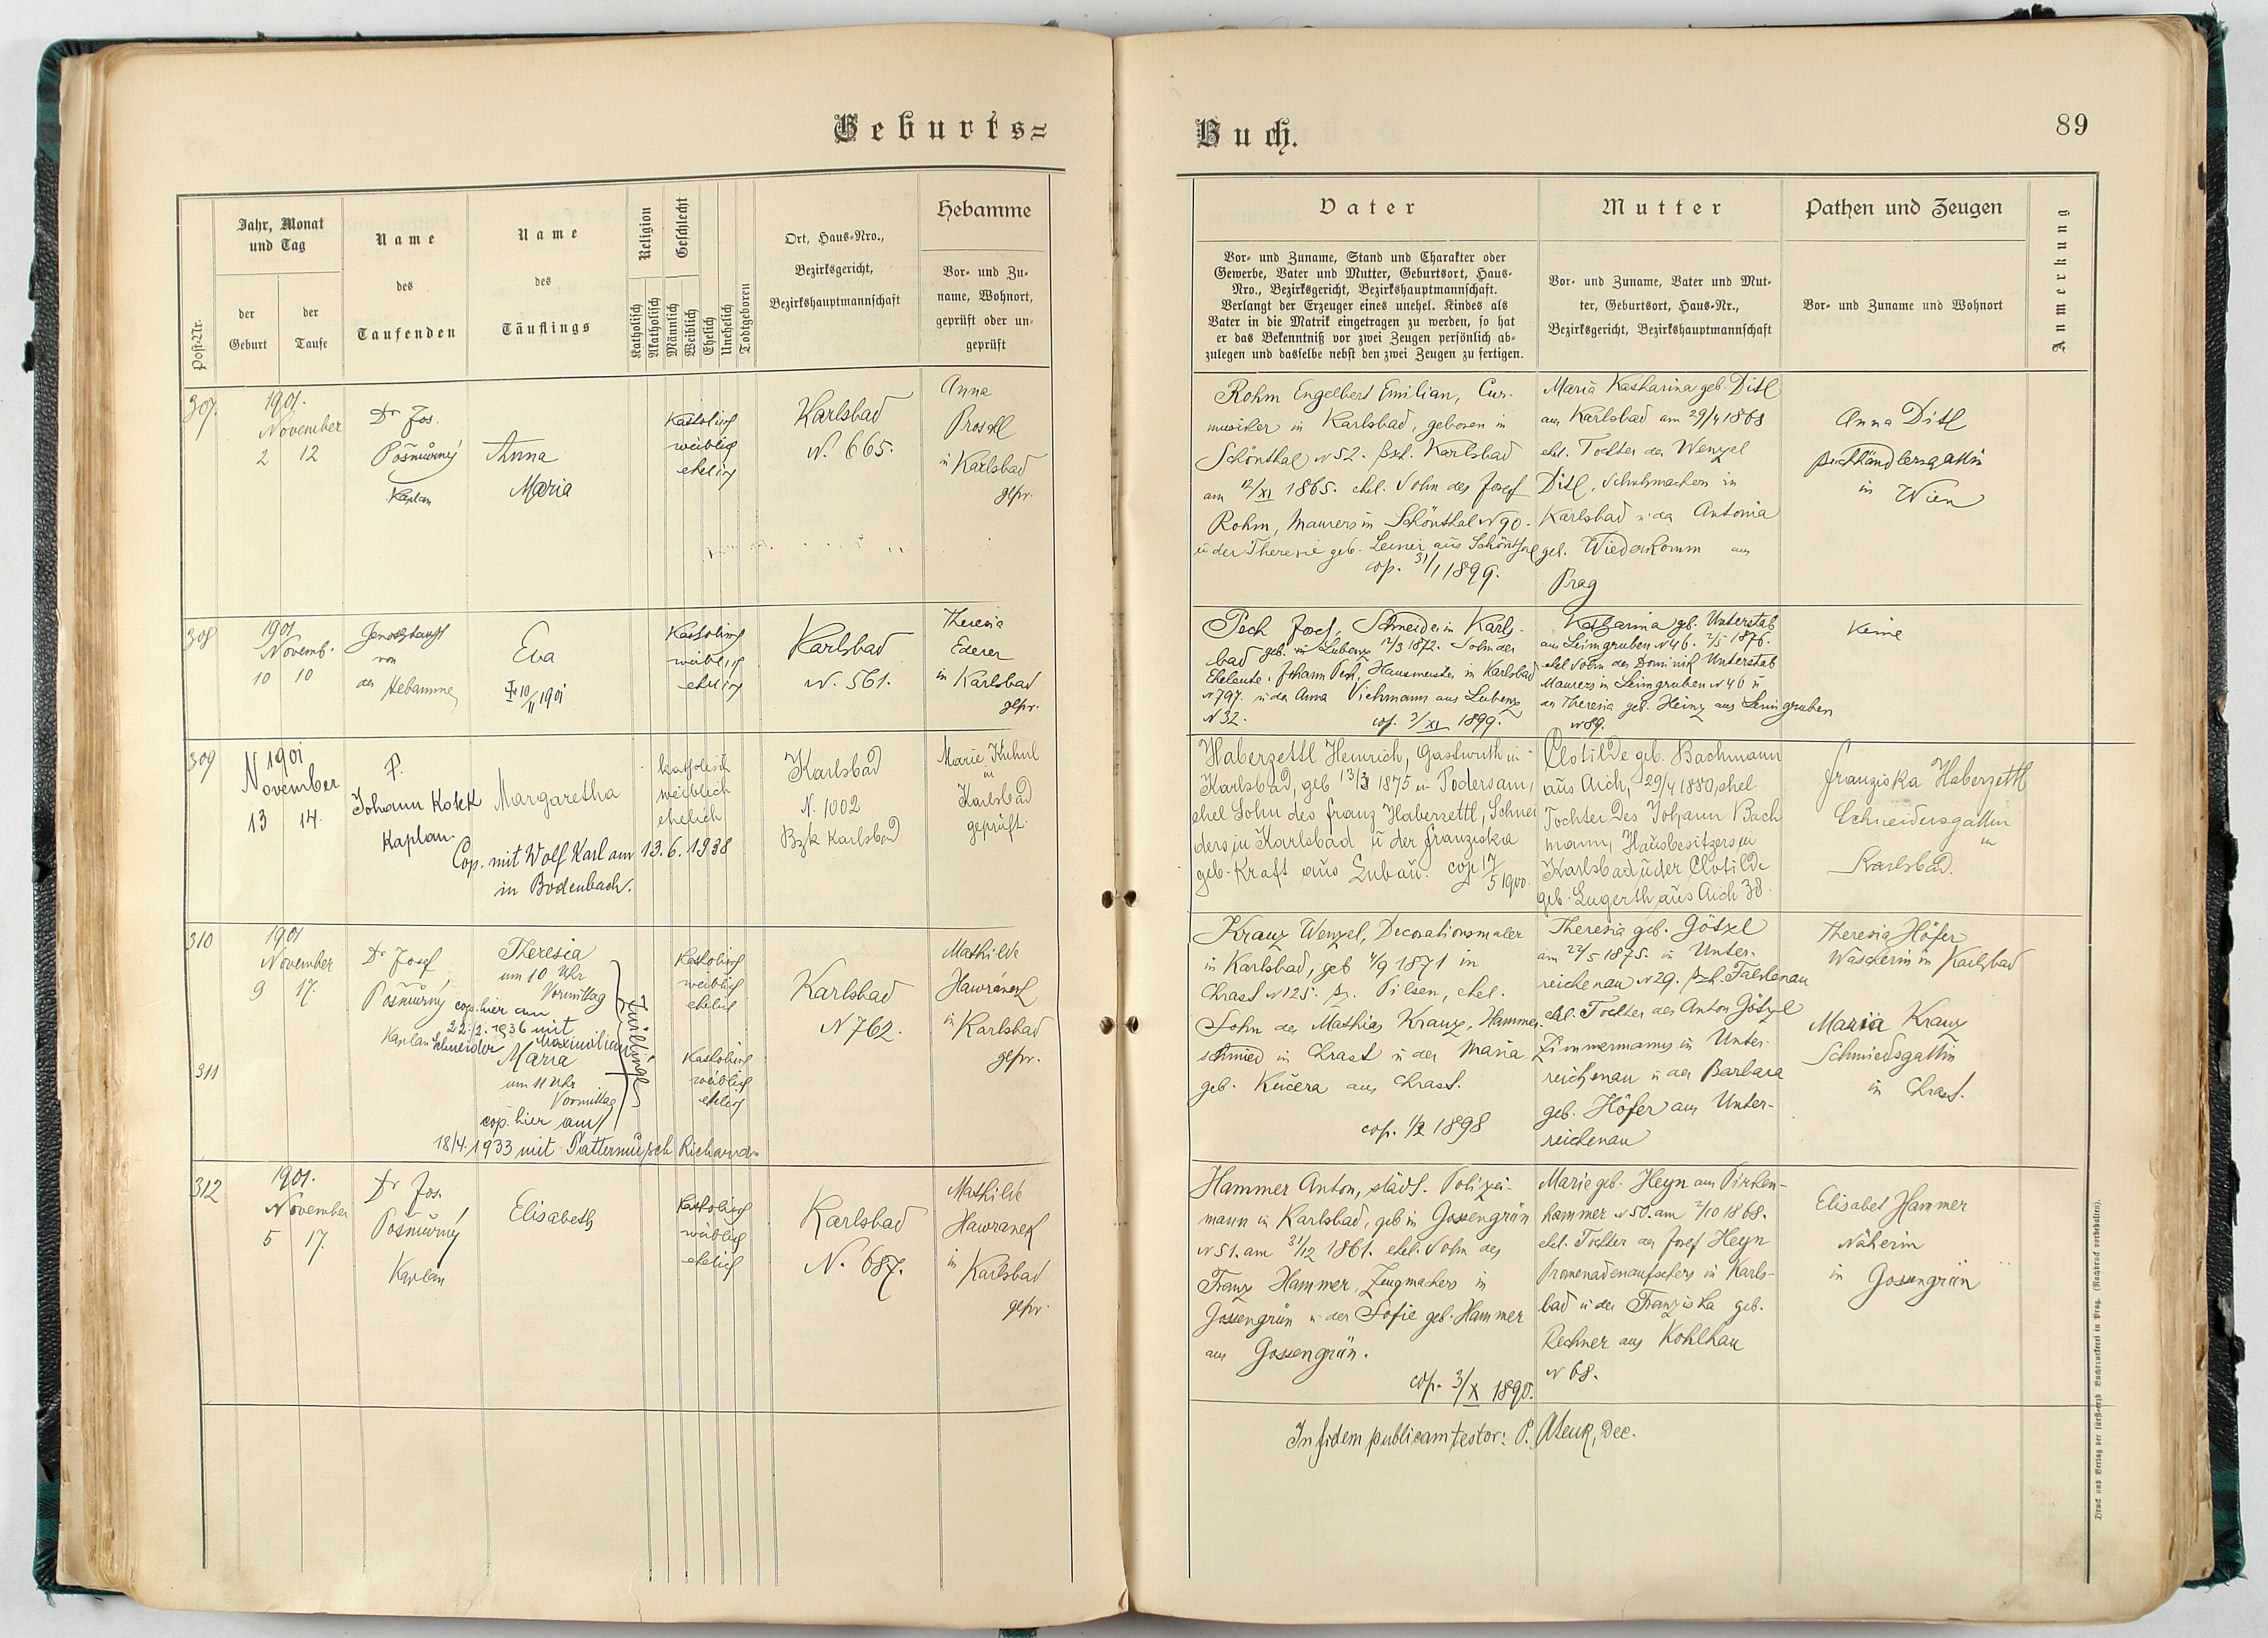 Geburts=
Jahr, Monat
und Tag
Name
Name
Religion
Geschlecht
Ort, Haus-Nro.,
Hebamme
Post-Nr.
der
Geburt
der
Taufe
des
Taufenden
des
Täuflings
Katholisch
Akatholisch
Männlich
Weiblich
Ehelich
Unehelich
Todtgeboren
Bezirksgericht,
Bezirkshauptmannschaft
Vor- und Zu-
name, Wohnort,
geprüft oder un-
geprüft
307.
1901.
November
2 12
Dr Jos.
Pošmůrný
Kaplan
Anna
Maria
Katholisch
weiblich
ehelich
Karlsbad
N. 665.
Anna
Proschl
in Karlsbad
gepr.
308
1901
Novemb.
10 10
von
der Hebamme
Eva
† 10/11 1901
Katholisch
weiblich
ehelich
Karlsbad
N. 561.
Theresia
Ederer
in Karlsbad
gepr.
309
1901
November
13 14.
P.
Johann Kolek
Kaplan.
Margaretha
Cop. mit Wolf Karl am 13.6.1938
in Bodenbach.
katholisch
weiblich
ehelich
Karlsbad
N. 1002
Bzk Karlsbad
Marie Kuhnl
in
Karlsbad
geprüft.
310
1901
November
9 17.
Dr Josef
Pošmůrný
Kaplan
Theresia
um 10 Uhr
Vormittag
cop. hier am
22.2.1936 mit
Schneider Maximilian
Zwillinge
Katholisch
weiblich
ehelich
Karlsbad
N 762.
Mathilde
Hawránek
in Karlsbad
gepr.
311
Maria
um 11 Uhr
Vormittag
cop. hier am
18/4.1933 mit Pattermusch Richard
Katholisch
weiblich
ehelich
312
1901.
November
5 17.
Dr Jos.
Pošmůrný
Kaplan
Elisabeth
Katholisch
weiblich
ehelich
Karlsbad
N. 687.
Mathilde
Hawranek
in Karlsbad
gepr.
Buch.
89
Vater
Mutter
Pathen und Zeugen
Anmerkung
Vor- und Zuname, Stand und Charakter oder
Gewerbe, Vater und Mutter, Geburtsort, Haus-
Nro., Bezirksgericht, Bezirkshauptmannschaft.
Verlangt der Erzeuger eines unehel. Kindes als
Vater in die Matrik eingetragen zu werden, so hat
er das Bekenntniß vor zwei Zeugen persönlich ab-
zulegen und dasselbe nebst den zwei Zeugen zu fertigen.
Vor- und Zuname, Vater und Mut-
ter, Geburtsort, Haus-Nr.,
Bezirksgericht, Bezirkshauptmannschaft
Vor- und Zuname und Wohnort
Rohm Engelbert Emilian, Cur-
musiker in Karlsbad, geboren in
Schönthal N 52. Bzh. Karlsbad
am 12/XI 1865. ehel. Sohn des Josef
Rohm, Maurers in Schönthal N 90.
u der Theresie geb. Leiner aus Schönthal
cop. 31/1 1899.
Maria Katharina geb. Ditl
aus Karlsbad am 29/4 1868
ehel. Tochter des Wenzel
Ditl, Schuhmachers in
Karlsbad u der Antonia
geb. Wiederkomm aus
Prag
Anna Ditl
Buchhändlersgattin
in Wien
Pech Josef, Schneider in Karls-
bad geb. in Lubenz 12/3 1872. Sohn der
Eheleute Johann Pech, Hausmeister in Karlsbad
N 797. u der Anna Viehmann aus Lubenz
N 32. cop. 3/XI 1899.
Katharina geb. Unterstab
aus Leimgruben N 46. 2/5 1876.
ehel Sohn des Dominik Unterstab
Maurers in Leimgruben N 46 u
der Theresia geb. Heinz aus Leimgruben
N 89.
Keine
Haberzettl Heinrich, Gastwirth in
Karlsbad, geb 13/3 1875 in Podersam,
ehel Sohn des Franz Haberzettl, Schnei
ders in Karlsbad u der Franziska
geb. Kraft aus Lubau. cop 17/5 1900.
Clotilde geb. Bachmann
aus Aich, 29/4 1880, ehel
Tochter des Johann Bach
mann, Hausbesitzers in
Karlsbad u der Clotilde
geb. Lugerth aus Aich 38.
Franziska Haberzettl
Schneidersgattin
in
Karlsbad.
Kranz Wenzel, Decorationsmaler
in Karlsbad, geb 4/9 1871 in
Chrast N 125. Bz. Pilsen, ehel.
Sohn des Mathias Kranz, Hammer-
schmied in Chrast u der Maria
geb. Kučera aus Chrast.
cop. 1/2 1898
Theresia geb. Götzl
am 22/5 1875. in Unter-
reichenau N 29. Bzh. Falkenau
ehel. Tochter des Anton Götzl
Zimmermanns in Unter-
reichenau u der Barbara
geb. Höfer aus Unter-
reichenau
Theresia Höfer
Wäscherin in Karlsbad
Maria Kranz
Schmiedsgattin
in Chrast.
Hammer Anton, städt. Polizei-
mann in Karlsbad, geb in Gossengrün
N 51. am 31/12 1861. ehel. Sohn des
Franz Hammer, Zeugmachers in
Gossengrün u der Sofie geb. Hammer
aus Gossengrün.
cop. 3/X 1890.
Marie geb. Heyn aus Pirken-
hammer N 50. am 2/10 1868.
ehel. Tochter des Josef Heyn
Promenadenaufsehers in Karls-
bad u der Franziska geb.
Rechner aus Kohlhau
N 68.
Elisabet Hammer
Näherin
in Gossengrün
In fidem publicam testor: P. Menk, Dec.
Druck und Verlag der fürst-erzb Buchdruckerei in Prag. (Nachdruck vorbehalten).